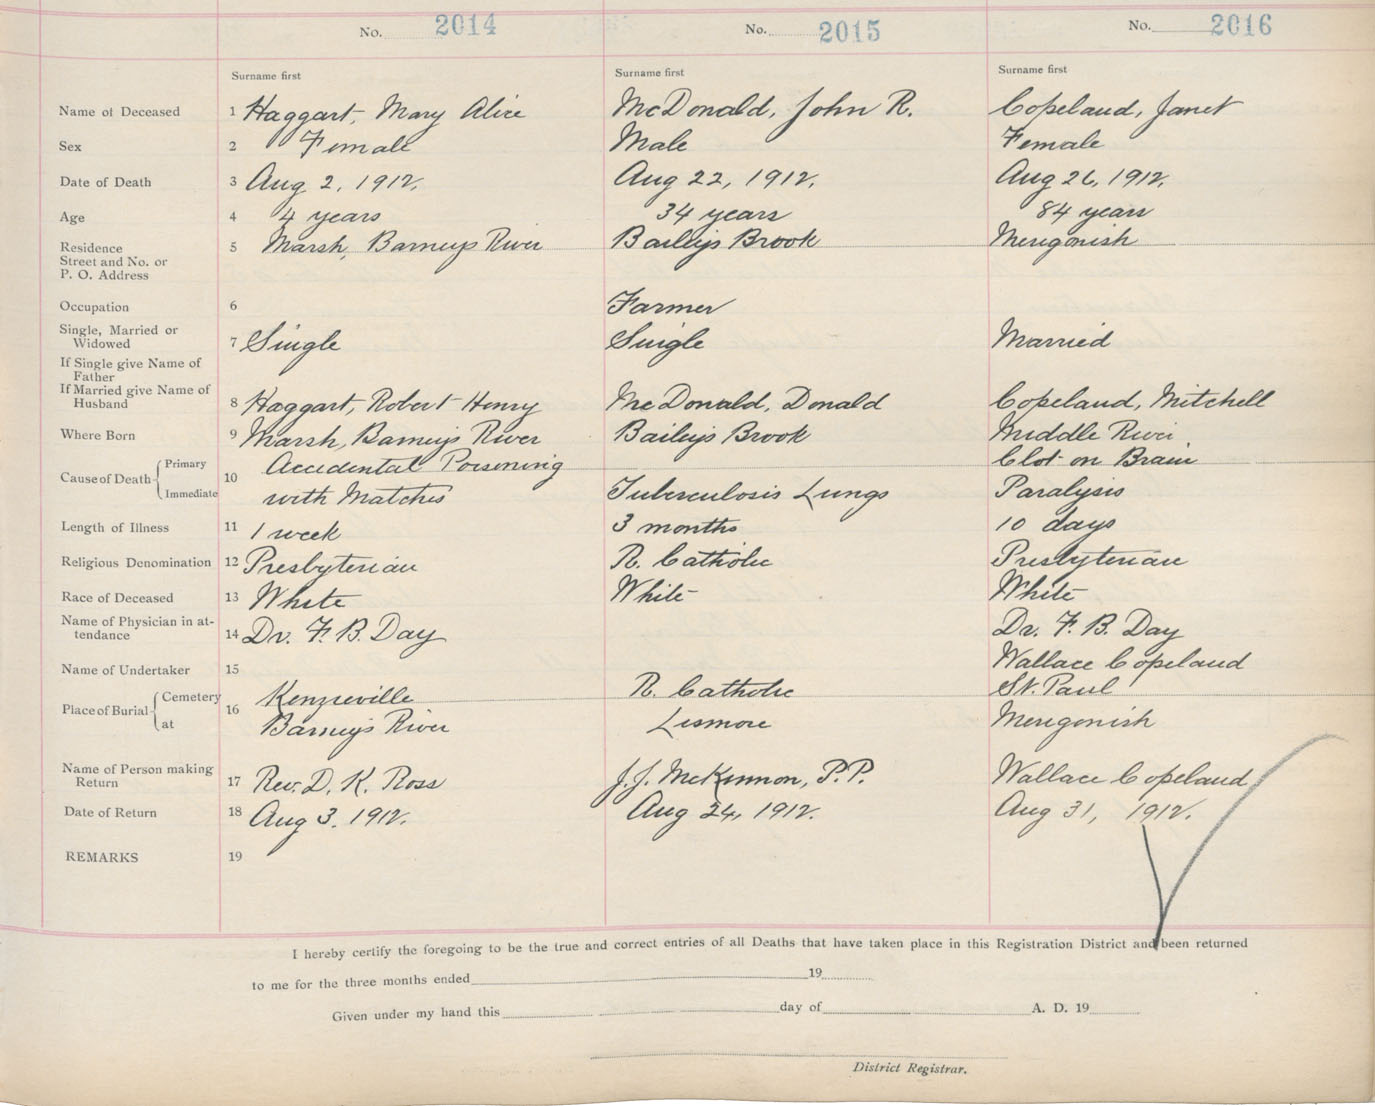 No. 2014 No. 2015 No. 2016
Surname first Surname first Surname first
Name of Deceased 1 Haggart, Mary Alice McDonald, John R. Copeland, Janet
Sex 2 Female Male Female
Date of Death 3 Aug 2, 1912. Aug 22, 1912. Aug 26, 1912.
Age 4 4 years 34 years 84 years
Residence 5 Marsh, Barneys River Baileys Brook Merigonish
Street and No. or
P. O. Address
Occupation 6 Farmer
Single, Married or
Widowed 7 Single Single Married
If Single give Name of
Father
If Married give Name of
Husband 8 Haggart, Robert Henry McDonald, Donald Copeland, Mitchell
Where Born 9 Marsh, Barneys River Baileys Brook Middle River
Cause of Death Primary 10 Accidental Poisoning Clot on Brain
Immediate with Matches Tuberculosis Lungs Paralysis
Length of Illness 11 1 week 3 months 10 days
Religious Denomination 12 Presbyterian R. Catholic Presbyterian
Race of Deceased 13 White White White
Name of Physician in at-
tendance 14 Dr. F. B. Day Dr. F. B. Day
Name of Undertaker 15 Wallace Copeland
Place of Burial Cemetery 16 Kenzieville R. Catholic St. Paul
at Barneys River Lismore Merigonish
Name of Person making
Return 17 Rev. D. K. Ross J. J. McKinnon, P.P. Wallace Copeland
Date of Return 18 Aug 3. 1912. Aug 24, 1912. Aug 31, 1912.
REMARKS 19
I hereby certify the foregoing to be the true and correct entries of all Deaths that have taken place in this Registration District and been returned
to me for the three months ended 19
Given under my hand this day of A. D. 19
District Registrar.